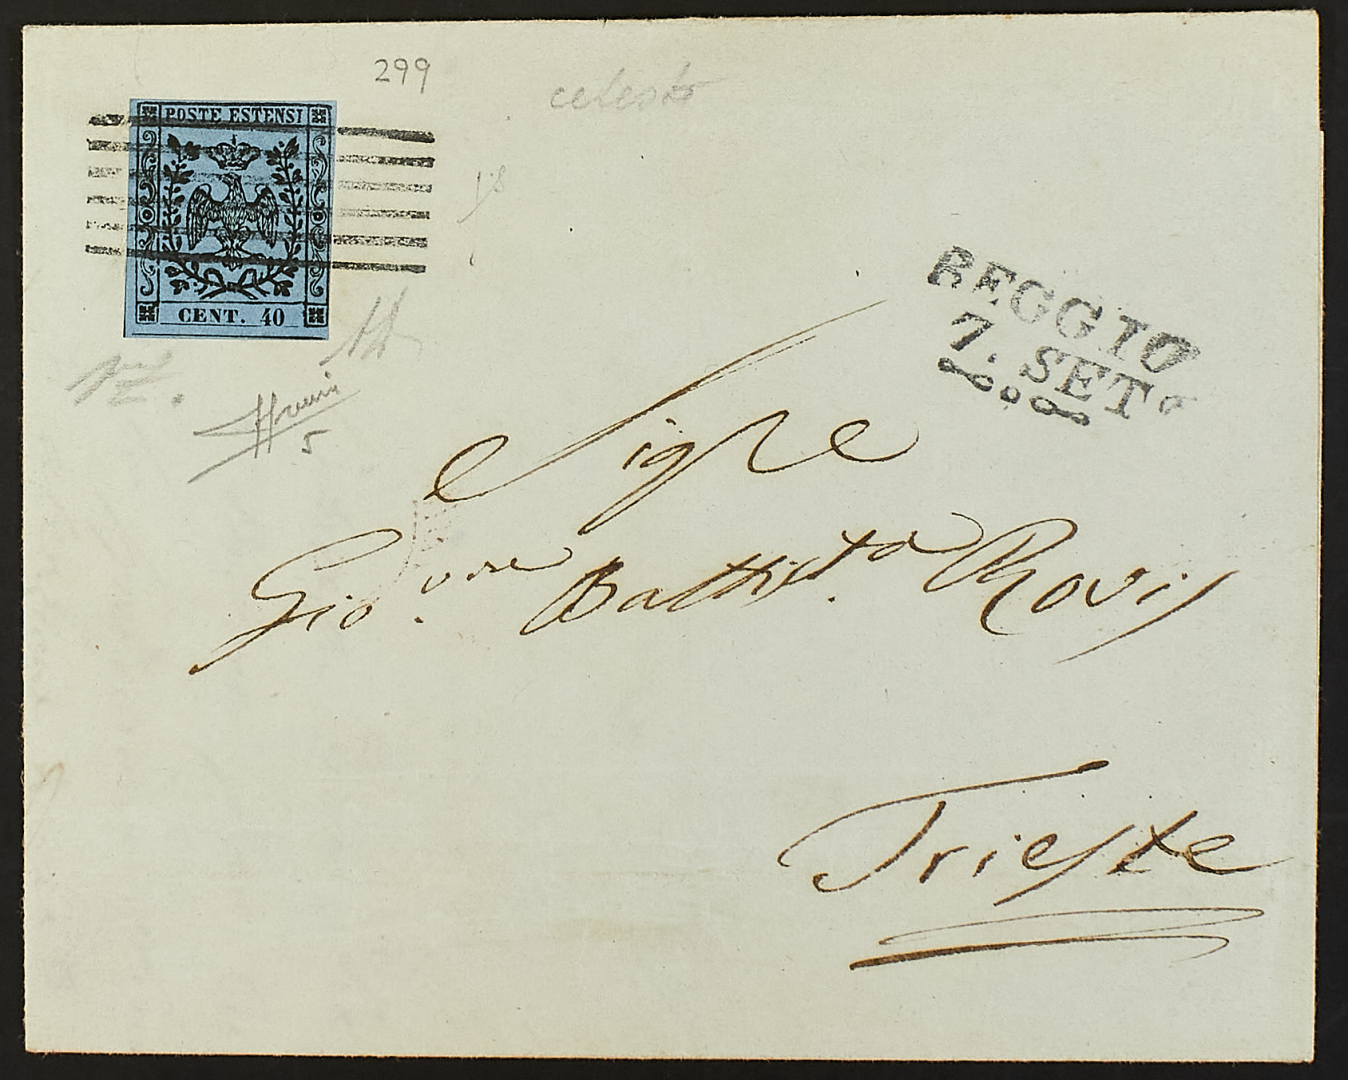 299
celeste
POSTE ESTENSI
CENT. 40
REGGIO
7. SET
5
Sigre
Giovne Battista Rovis
Trieste